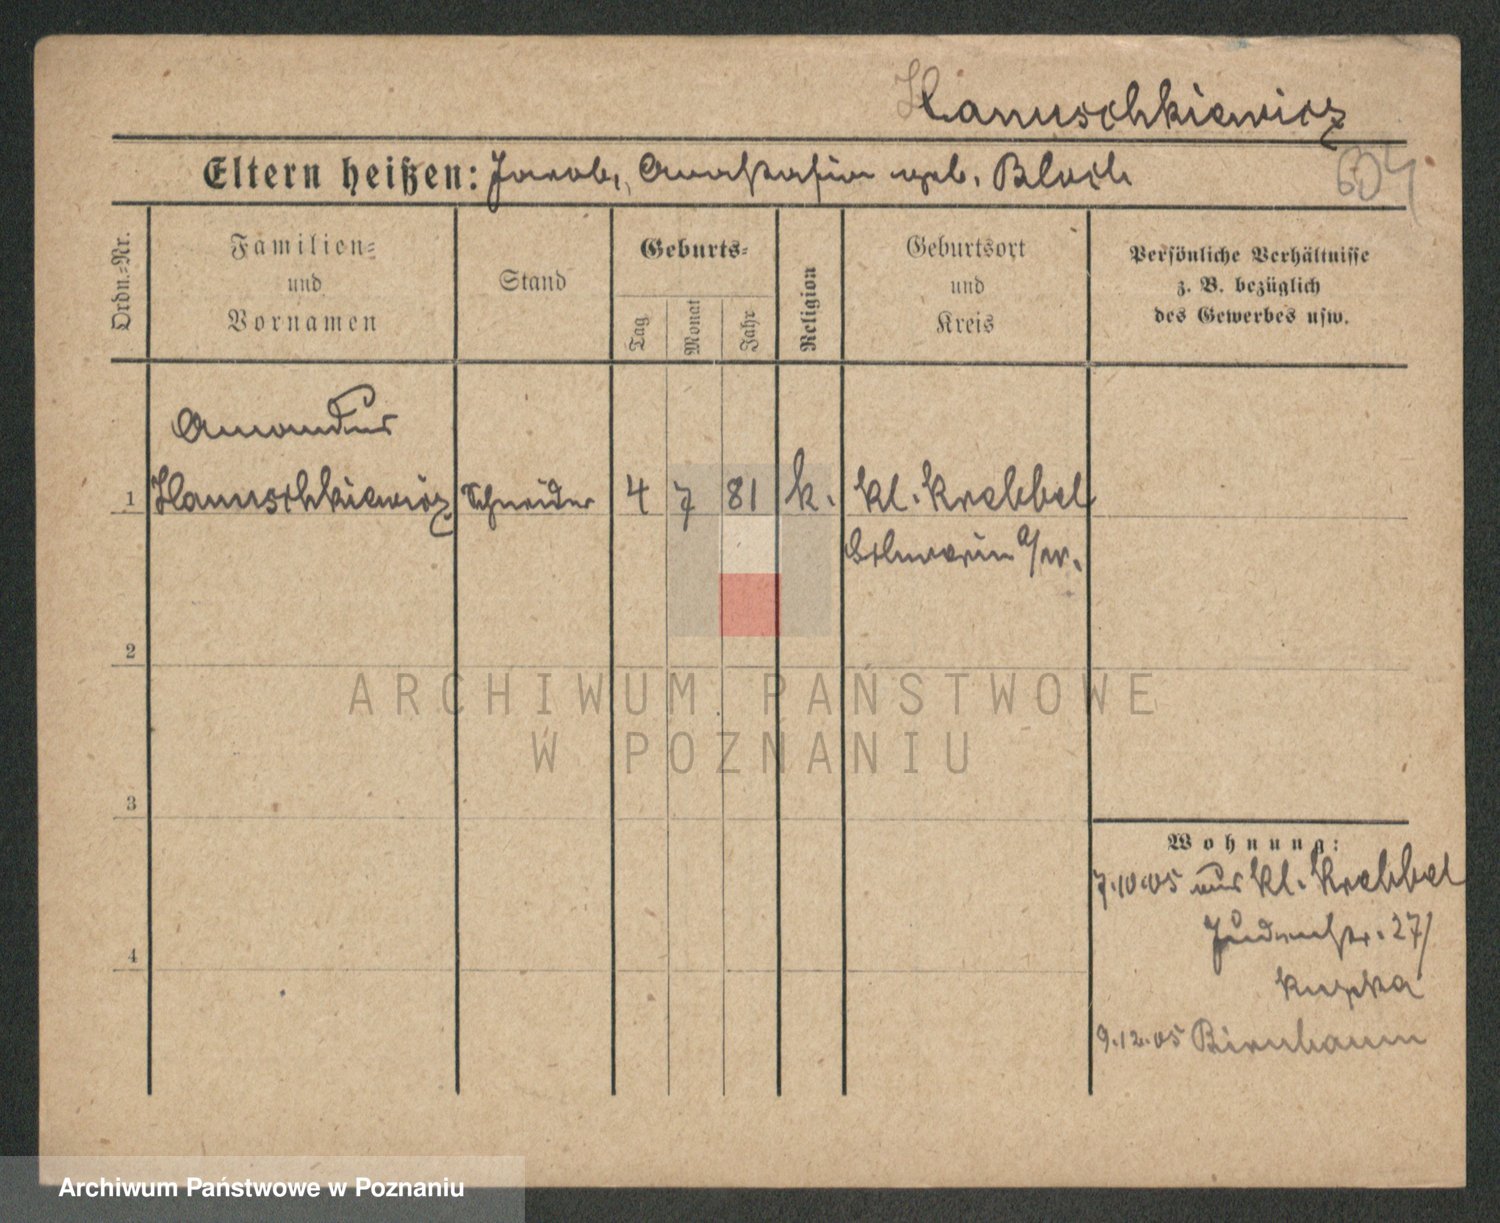 Hanuschkiewicz
Eltern heißen: Jacob, Anastasia geb. Bloch
604
Ordn.=Nr.
Familien=
und
Vornamen
Stand
Geburts=
Tag
Monat
Jahr
Religion
Geburtsort
und
Kreis
Persönliche Verhältnisse
z. B. bezüglich
des Gewerbes usw.
Amandus
1 Hanuschkiewicz Schneider 4 7 81 k. Kl. Krebbel
Schwerin a/W.
2
ARCHIWUM PAŃSTWOWE
W POZNANIU
3
Wohnung:
7.10.05 aus Kl. Krebbel
Judenstr. 27/
4
9.12.05 Birnbaum
Archiwum Państwowe w Poznaniu